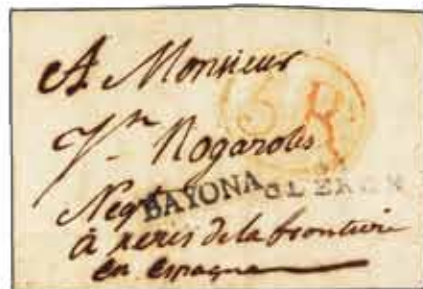 A Monsieur
5 R
Nogaroles
Negt
BAYONA OLERON
à xeres de la frontiere
en espagne